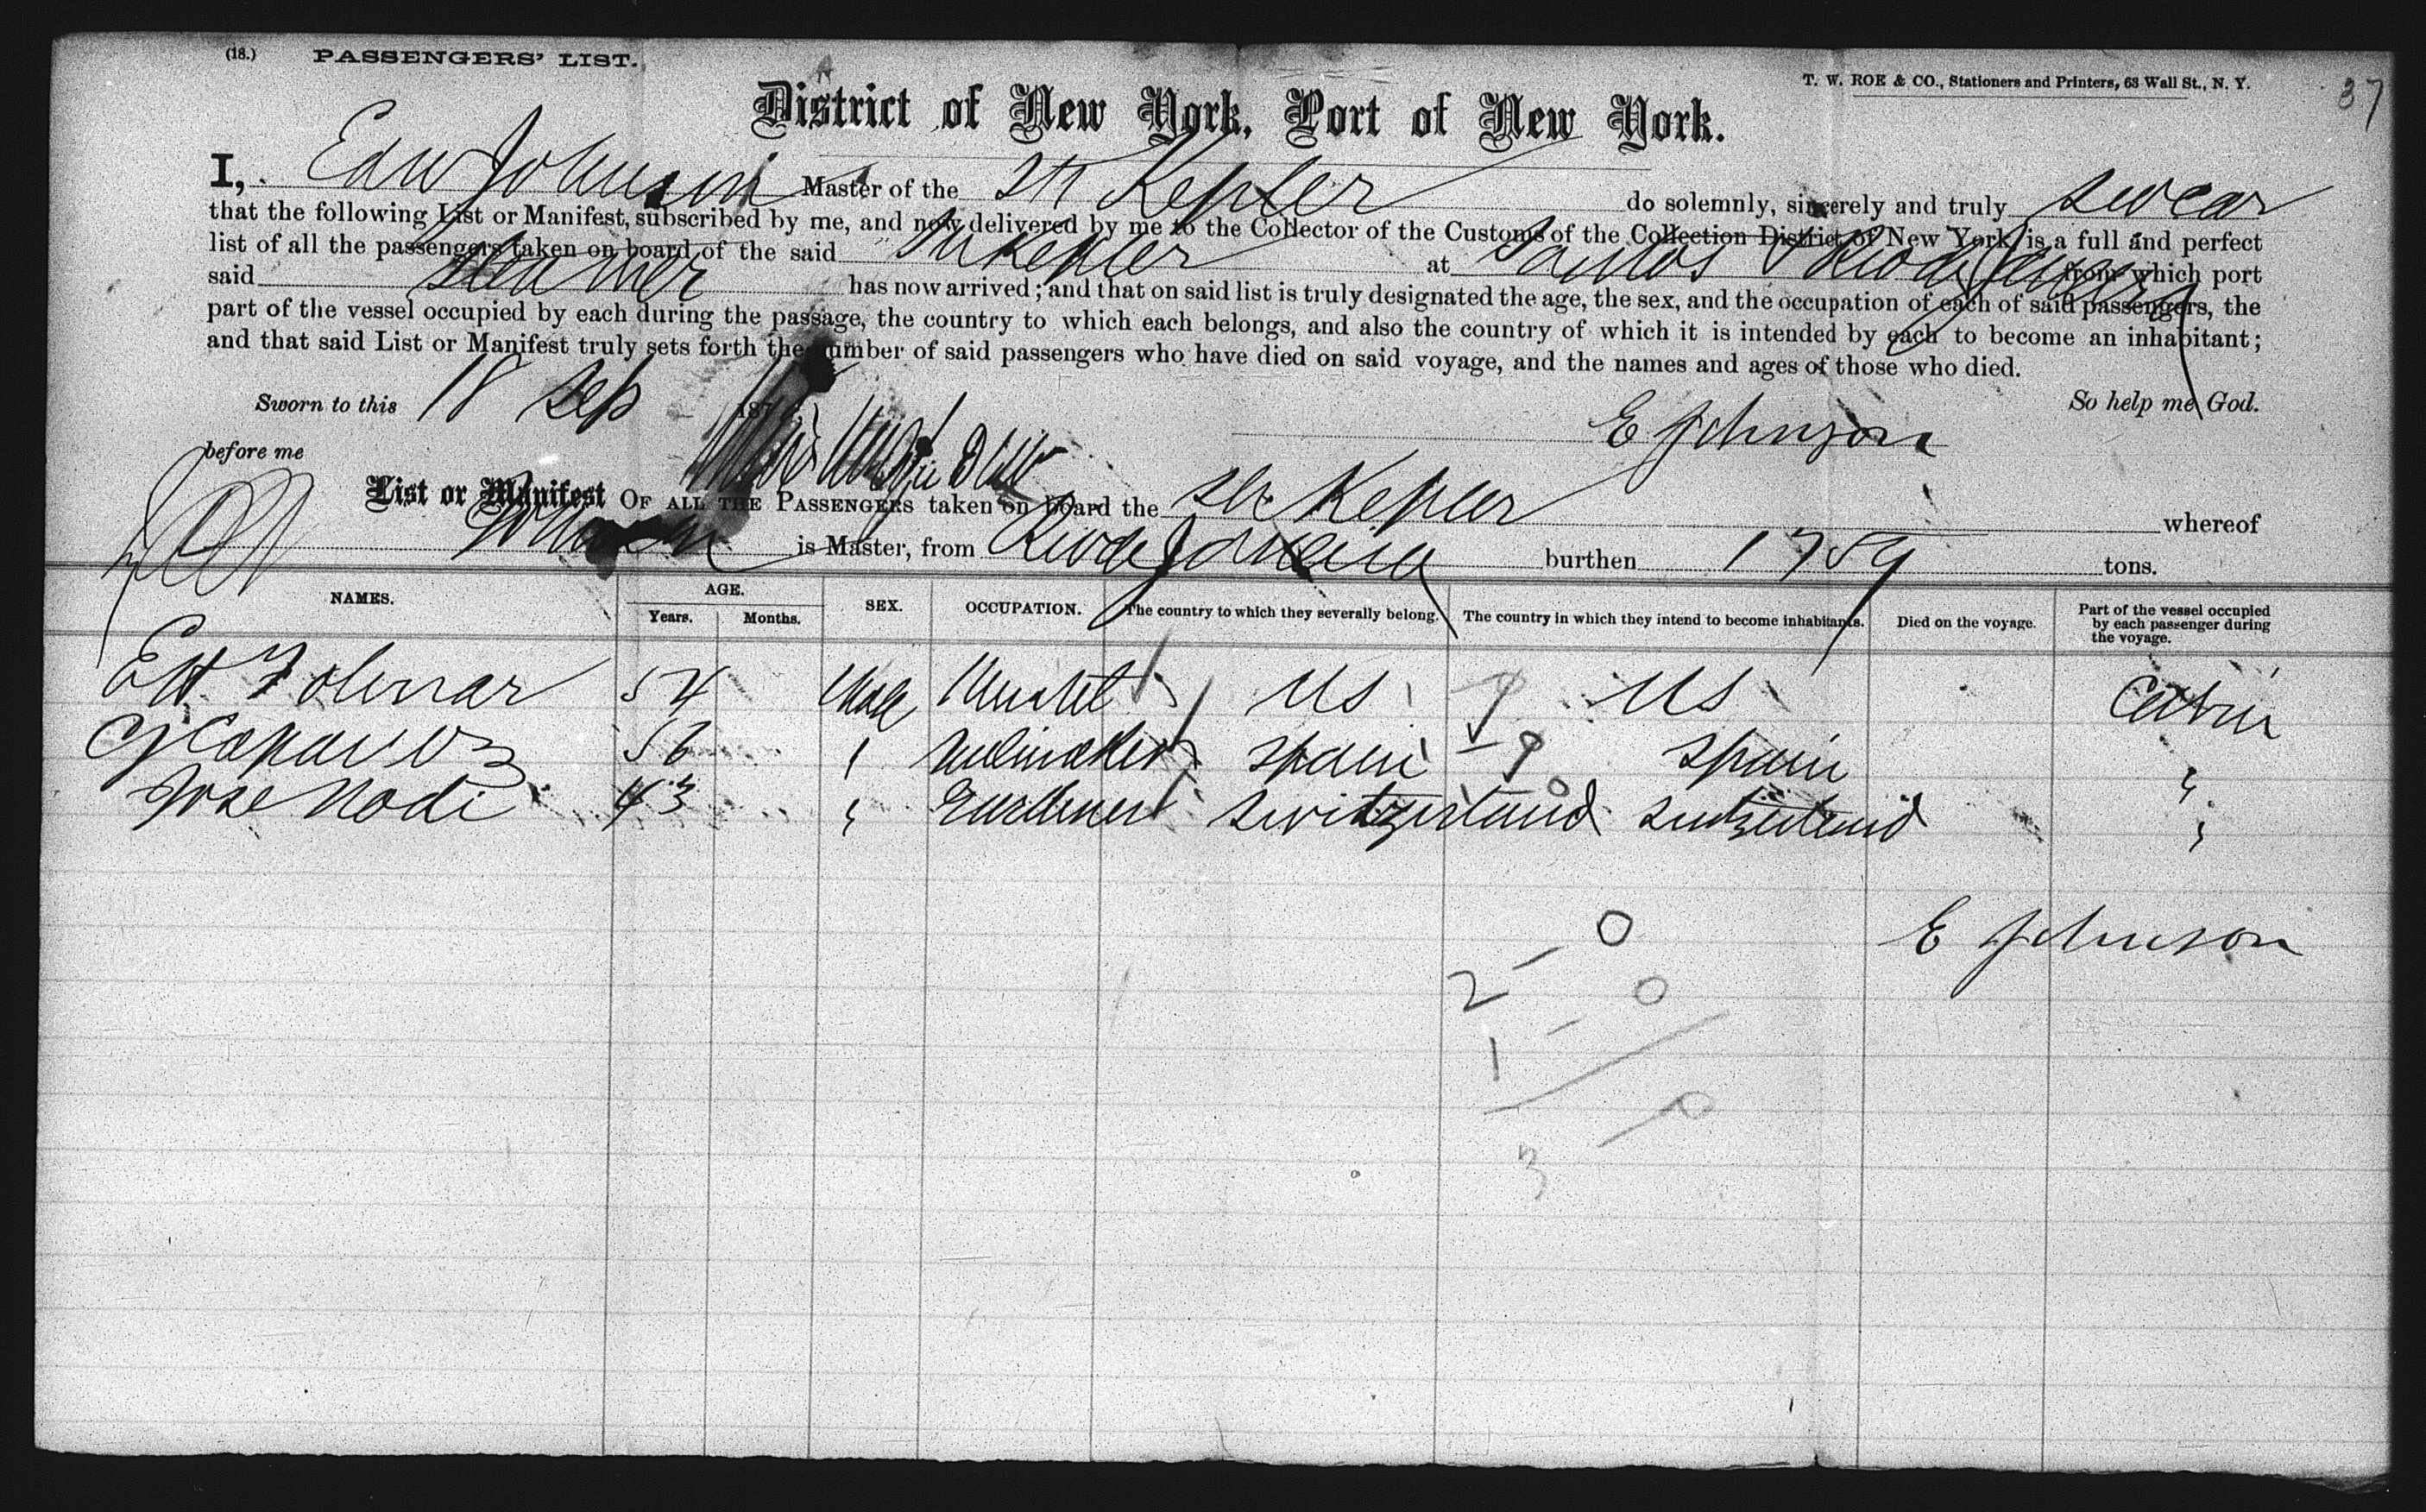 (18.) PASSENGERS' LIST.
T. W. ROE & CO., Stationers and Printers, 63 Wall St., N. Y.
37
District of New York, Port of New York.
I, Edw Johnson Master of the Str Kepler do solemnly, sincerely and truly swear
that the following List or Manifest, subscribed by me, and now delivered by me to the Collector of the Customs of the Collection District of New York, is a full and perfect
list of all the passengers taken on board of the said Str Kepler at Santos & Rio de Janeiro from which port
said steamer has now arrived; and that on said list is truly designated the age, the sex, and the occupation of each of said passengers, the
part of the vessel occupied by each during the passage, the country to which each belongs, and also the country of which it is intended by each to become an inhabitant;
and that said List or Manifest truly sets forth the number of said passengers who have died on said voyage, and the names and ages of those who died.
Sworn to this 18 Sep 187 So help me God.
before me E Johnson
List or Manifest OF ALL THE PASSENGERS taken on board the Str Kepler whereof
is Master, from Rio de Janeiro burthen 1789 tons.
NAMES. AGE. Years. Months. SEX. OCCUPATION. The country to which they severally belong. The country in which they intend to become inhabitants. Died on the voyage. Part of the vessel occupied by each passenger during the voyage.
54 Male US US Cabin
56 Spain Spain "
Jose Nodi 43 " Gardener Switzerland Switzerland "
E Johnson
0
2 - 0
1 -
0
3